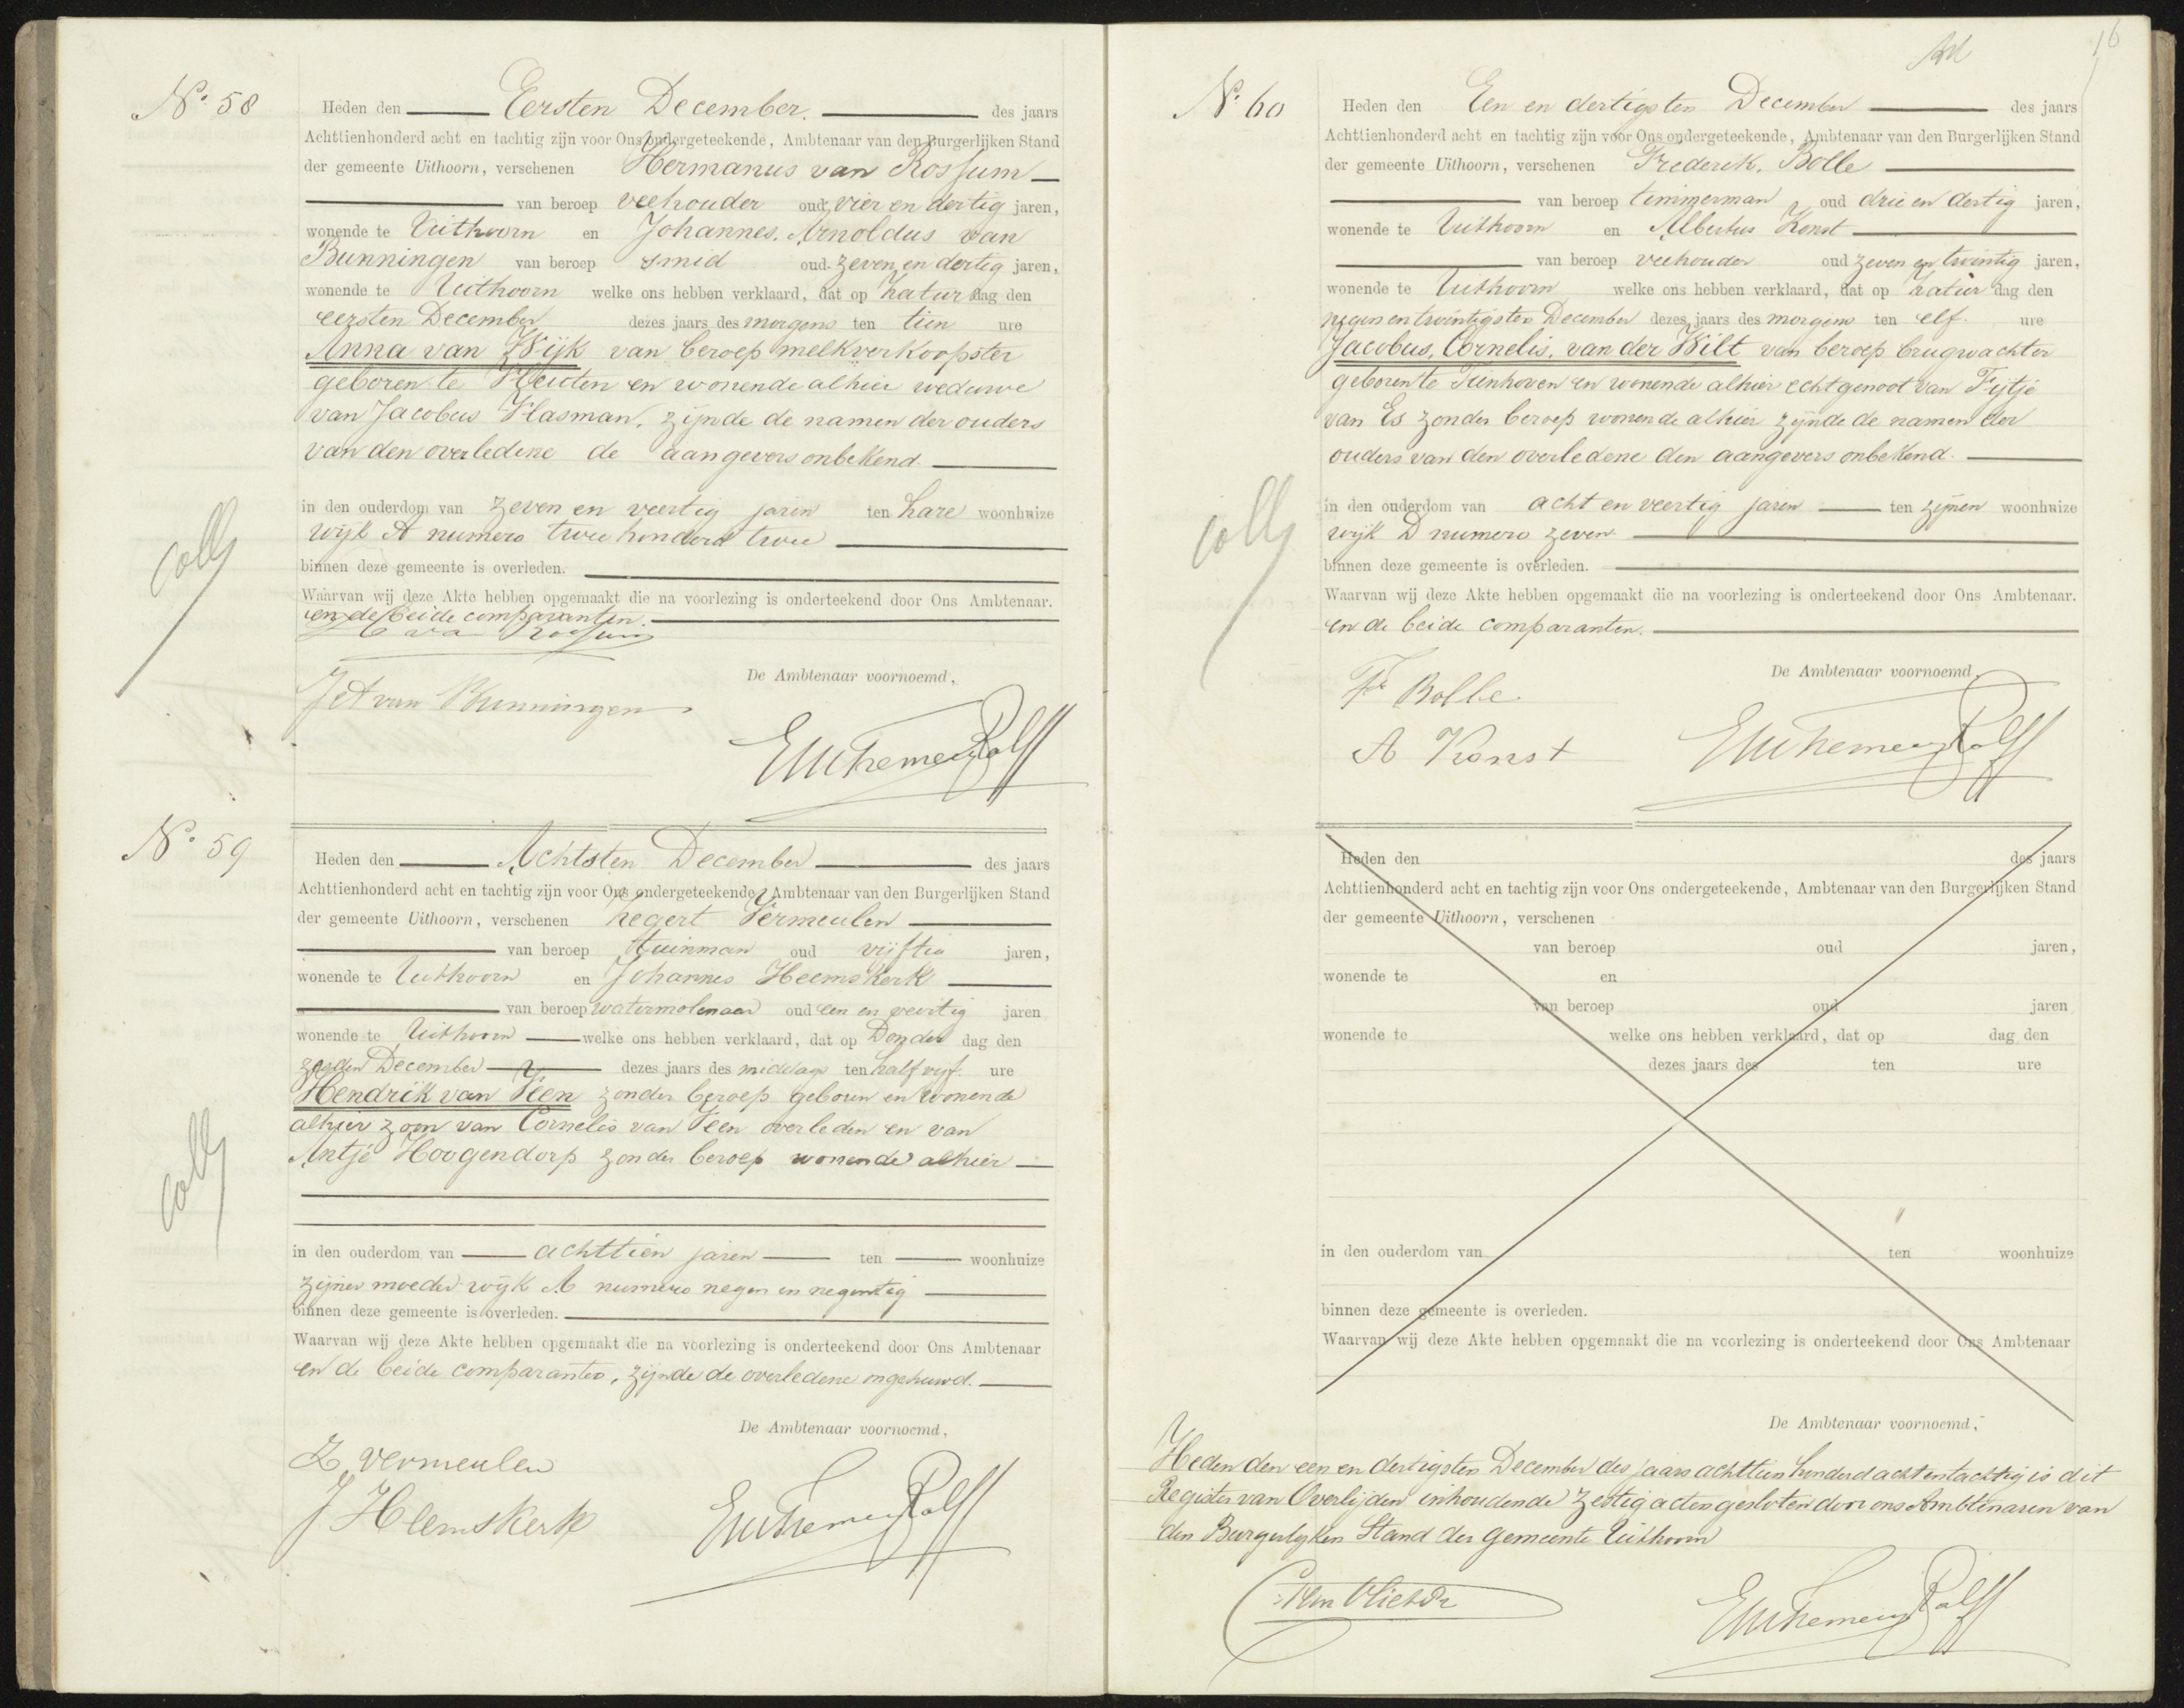 No. 58
Heden den Eersten December. des jaars
Achttienhonderd acht en tachtig zijn voor Ons ondergeteekende, Ambtenaar van den Burgerlijken Stand
der gemeente Uithoorn, verschenen Hermanus van Rossum
van beroep veehouder oud vier en dertig jaren,
wonende te Uithoorn en Johannes. Arnoldus van
Bunningen van beroep smid oud zeven en dertig jaren,
wonende te Uithoorn welke ons hebben verklaard, dat op Zatur dag den
eersten December dezes jaars des morgens ten tien ure
Anna van Wijk van beroep melkverkoopster
geboren te en wonende alhier weduwe
van Jacobus Klasman, zijnde de namen der ouders
van den overledene de aangevers onbekend.
in den ouderdom van zeven en veertig jaren ten hare woonhuize
wijk A numero twee honderd twee
binnen deze gemeente is overleden.
Waarvan wij deze Akte hebben opgemaakt die na voorlezing is onderteekend door Ons Ambtenaar.
en de beide comparanten.
H van Rossum
De Ambtenaar voornoemd,
J A van Bunningen
Coll
No. 59
Heden den Achtsten December des jaars
Achttienhonderd acht en tachtig zijn voor Ons ondergeteekende, Ambtenaar van den Burgerlijken Stand
der gemeente Uithoorn, verschenen Zegert Vermeulen
van beroep tuinman oud vijftig jaren,
wonende te Uithoorn en Johannes Heemskerk
van beroep watermolenaar oud een en veertig jaren
wonende te Uithoorn welke ons hebben verklaard, dat op Donder dag den
zesden December dezes jaars des middags ten half vijf ure
Hendrik van Veen zonder beroep geboren en wonende
alhier zoon van Cornelis van Veen overleden en van
Antje Hoogendorp zonder beroep wonende alhier
in den ouderdom van achttien jaren ten woonhuize
zijner moeder wijk A numero negen en negentig
binnen deze gemeente is overleden.
Waarvan wij deze Akte hebben opgemaakt die na voorlezing is onderteekend door Ons Ambtenaar
en de beide comparanten, zijnde de overledene ongehuwd.
De Ambtenaar voornoemd,
Z. Vermeulen
J Heemskerk
Coll
16
No. 60
Heden den Een en dertigsten December des jaars
Achttienhonderd acht en tachtig zijn voor Ons ondergeteekende, Ambtenaar van den Burgerlijken Stand
der gemeente Uithoorn, verschenen Frederik. Bolle
van beroep timmerman oud drie en dertig jaren,
wonende te Uithoorn en Albertus Konst
van beroep veehouder oud zeven en twintig jaren,
wonende te Uithoorn welke ons hebben verklaard, dat op Zatur dag den
negen en twintigsten December dezes jaars des morgens ten elf ure
Jacobus, Cornelis, van der Wilt van beroep brugwachter
geboren te Tienhoven en wonende alhier echtgenoot van Fijtje
van Es zonder beroep wonende alhier zijnde de namen der
ouders van den overledene den aangevers onbekend.
in den ouderdom van acht en veertig jaren ten zijnen woonhuize
wijk D numero zeven
binnen deze gemeente is overleden.
Waarvan wij deze Akte hebben opgemaakt die na voorlezing is onderteekend door Ons Ambtenaar.
en de beide comparanten.
De Ambtenaar voornoemd,
Fr Bolle
A Konst
Coll
Heden den des jaars
Achttienhonderd acht en tachtig zijn voor Ons ondergeteekende, Ambtenaar van den Burgerlijken Stand
der gemeente Uithoorn, verschenen
van beroep oud jaren,
wonende te en
van beroep oud jaren
wonende te welke ons hebben verklaard, dat op dag den
dezes jaars des ten ure
in den ouderdom van ten woonhuize
binnen deze gemeente is overleden.
Waarvan wij deze Akte hebben opgemaakt die na voorlezing is onderteekend door Ons Ambtenaar
De Ambtenaar voornoemd,
Heden den een en dertigsten December des jaars achttien honderd acht en tachtig is dit
Register van Overlijden inhoudende zestig acten gesloten door ons Ambtenaren van
den Burgerlyken Stand der gemeente Uithoorn